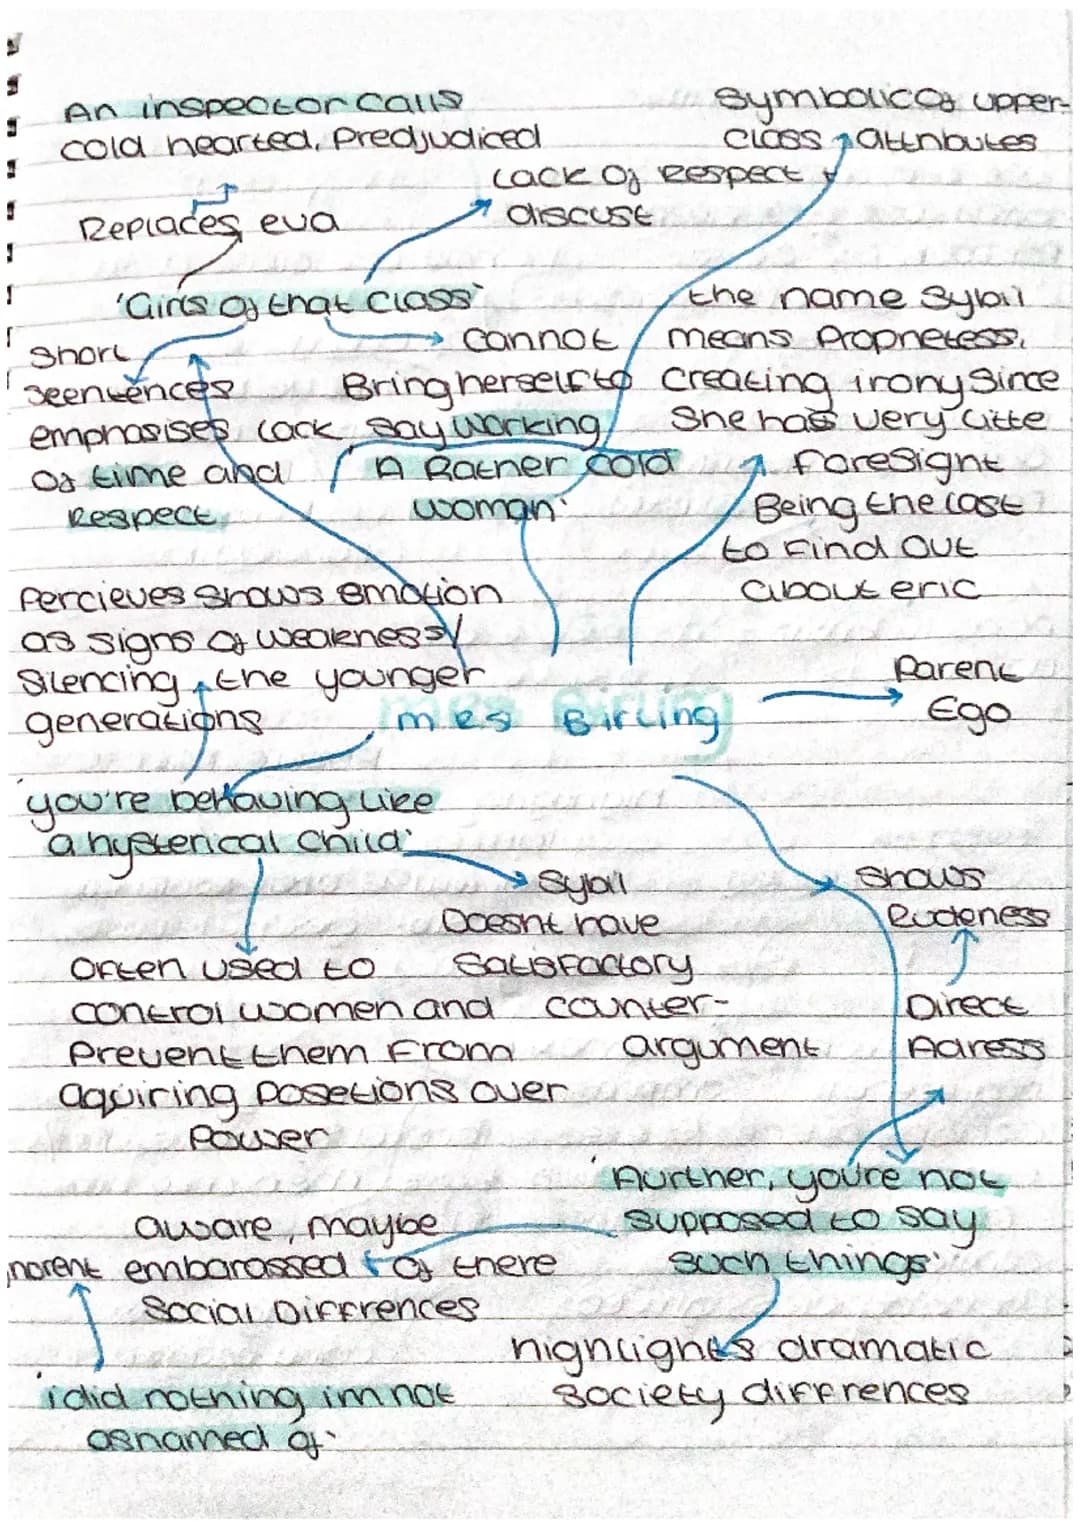 An inspector calls
cold hearted, Predjudiced
Symbolic of upper-
class attributes
Lack of Respect +
discust
Replaces eva
'Girls of that class'
Short
seentences
emphasises lack
of time and
Respect.
Cannot
Bring herself to
say working
the name Sybil
means Prophetess,
creating irony since
She has very litte
foresight
Being the last
to find out
about eric
A Rather cold
woman'
Percieves shows emotion
as signs of weakness/
Silencing the younger
generations
mrs Birling
Parent
Ego
'you're behaving like
a hysterical child'
Sybil
Doesnt have
Satisfactory
counter-
argument
Often used to
control women and
Prevent them from
aquiring posetions over
Power
Shows
Rudeness
Direct
Adress
'Aurther, you're not
supposed to say
such things'
aware, maybe
embarassed of there
Social Diffrences
highlights dramatic
society diffrences
'i did nothing im not
ashamed of'